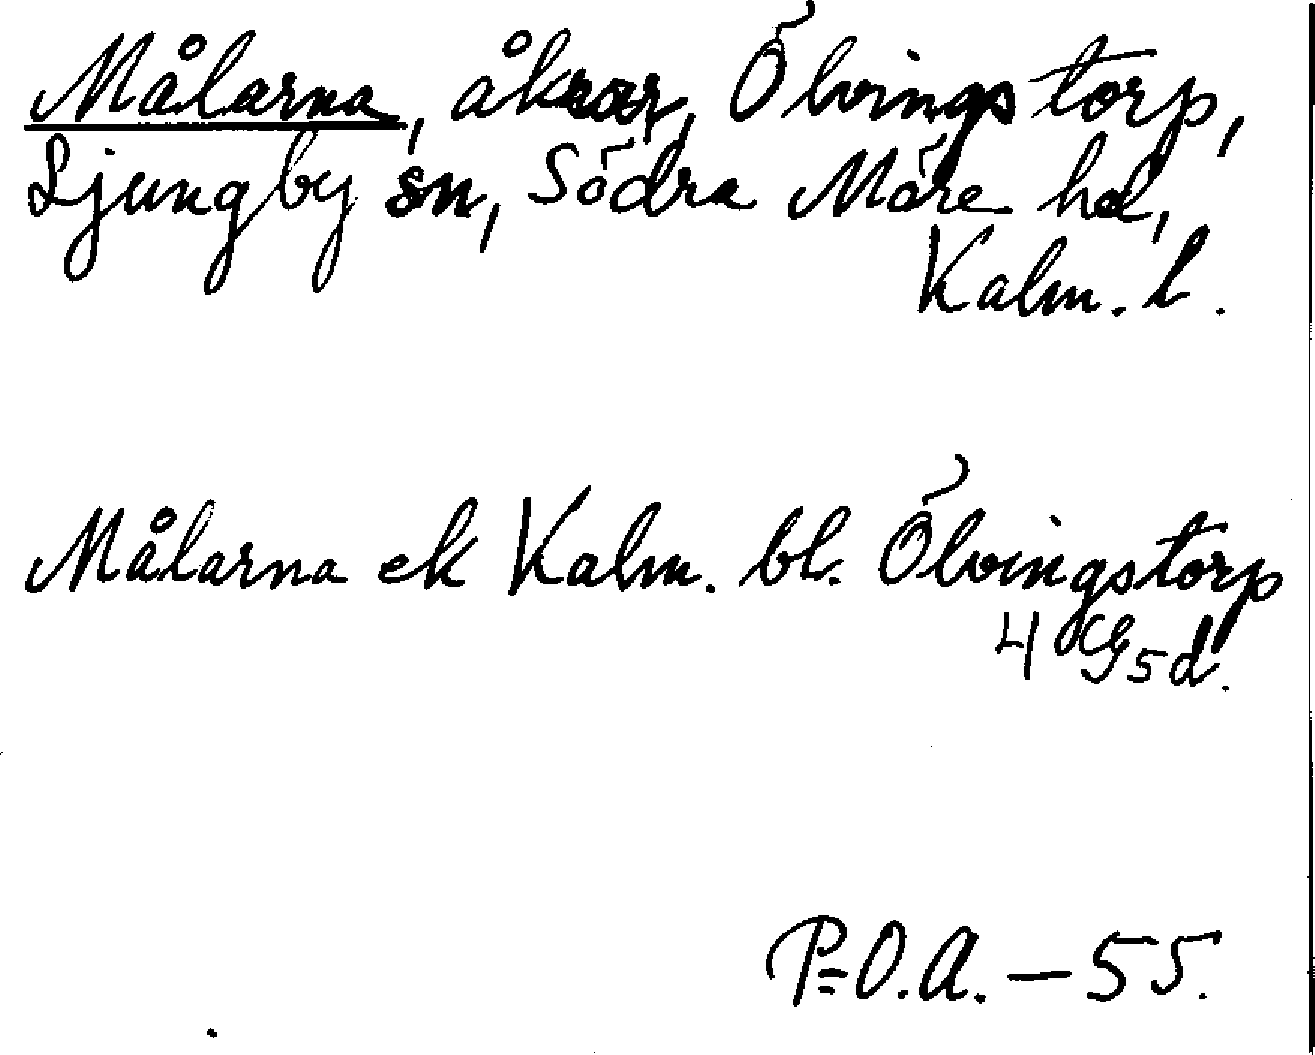 Målarna, åkrar, Ölvingstorp,
Ljungby sn, Södra Möre hd,
Kalm. l.
Målarna ek Kalm. bl. Ölvingstorp
4 G5d.
P=O.A. - 55.